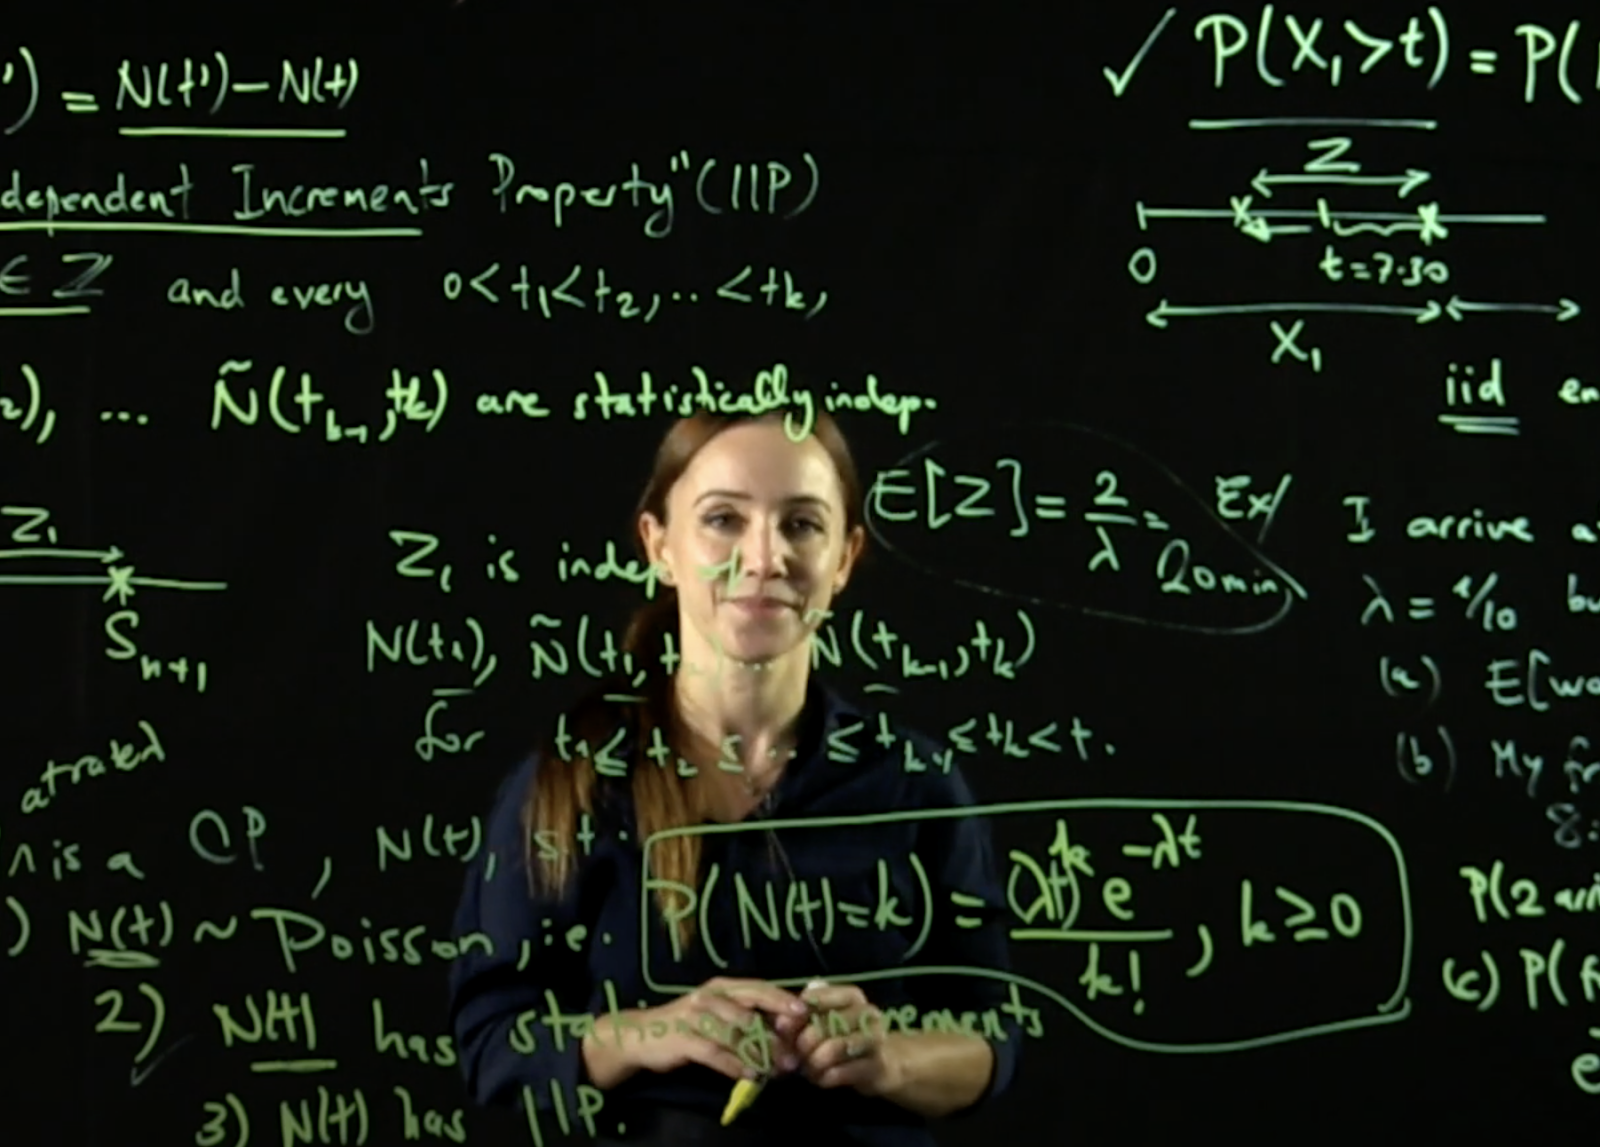 ') = N(t')-N(t)
dependent Increments Property" (IIP)
∈ Z and every 0<t₁<t₂,..<tk,
₂), ... Ñ(tₖ₋₁,tk) are statistically indep.
Z₁
Sₙ₊₁
Z₁ is indep of
N(t₁), Ñ(t₁, t ... Ñ(tₖ₋₁,tₖ)
for t₁≤ t₂ ≤ ... ≤ tₖ₋₁≤tk<t.
is a CP, N(t), s.t.
) N(t) ~ Poisson, i.e. P(N(t)=k) = (λt)ᵏ e^-λt / k! , k ≥ 0
2) N(t) has stationary increments
3) N(t) has IIP.
✓ P(X₁>t) = P(
Z
0 t=7.30
X₁
iid
E[Z] = 2/λ = 20min
Ex/ I arrive a
λ = 1/10 bu
(a) E[wa
(b) My fr
8:
P(2 arri
(c) P(f
e